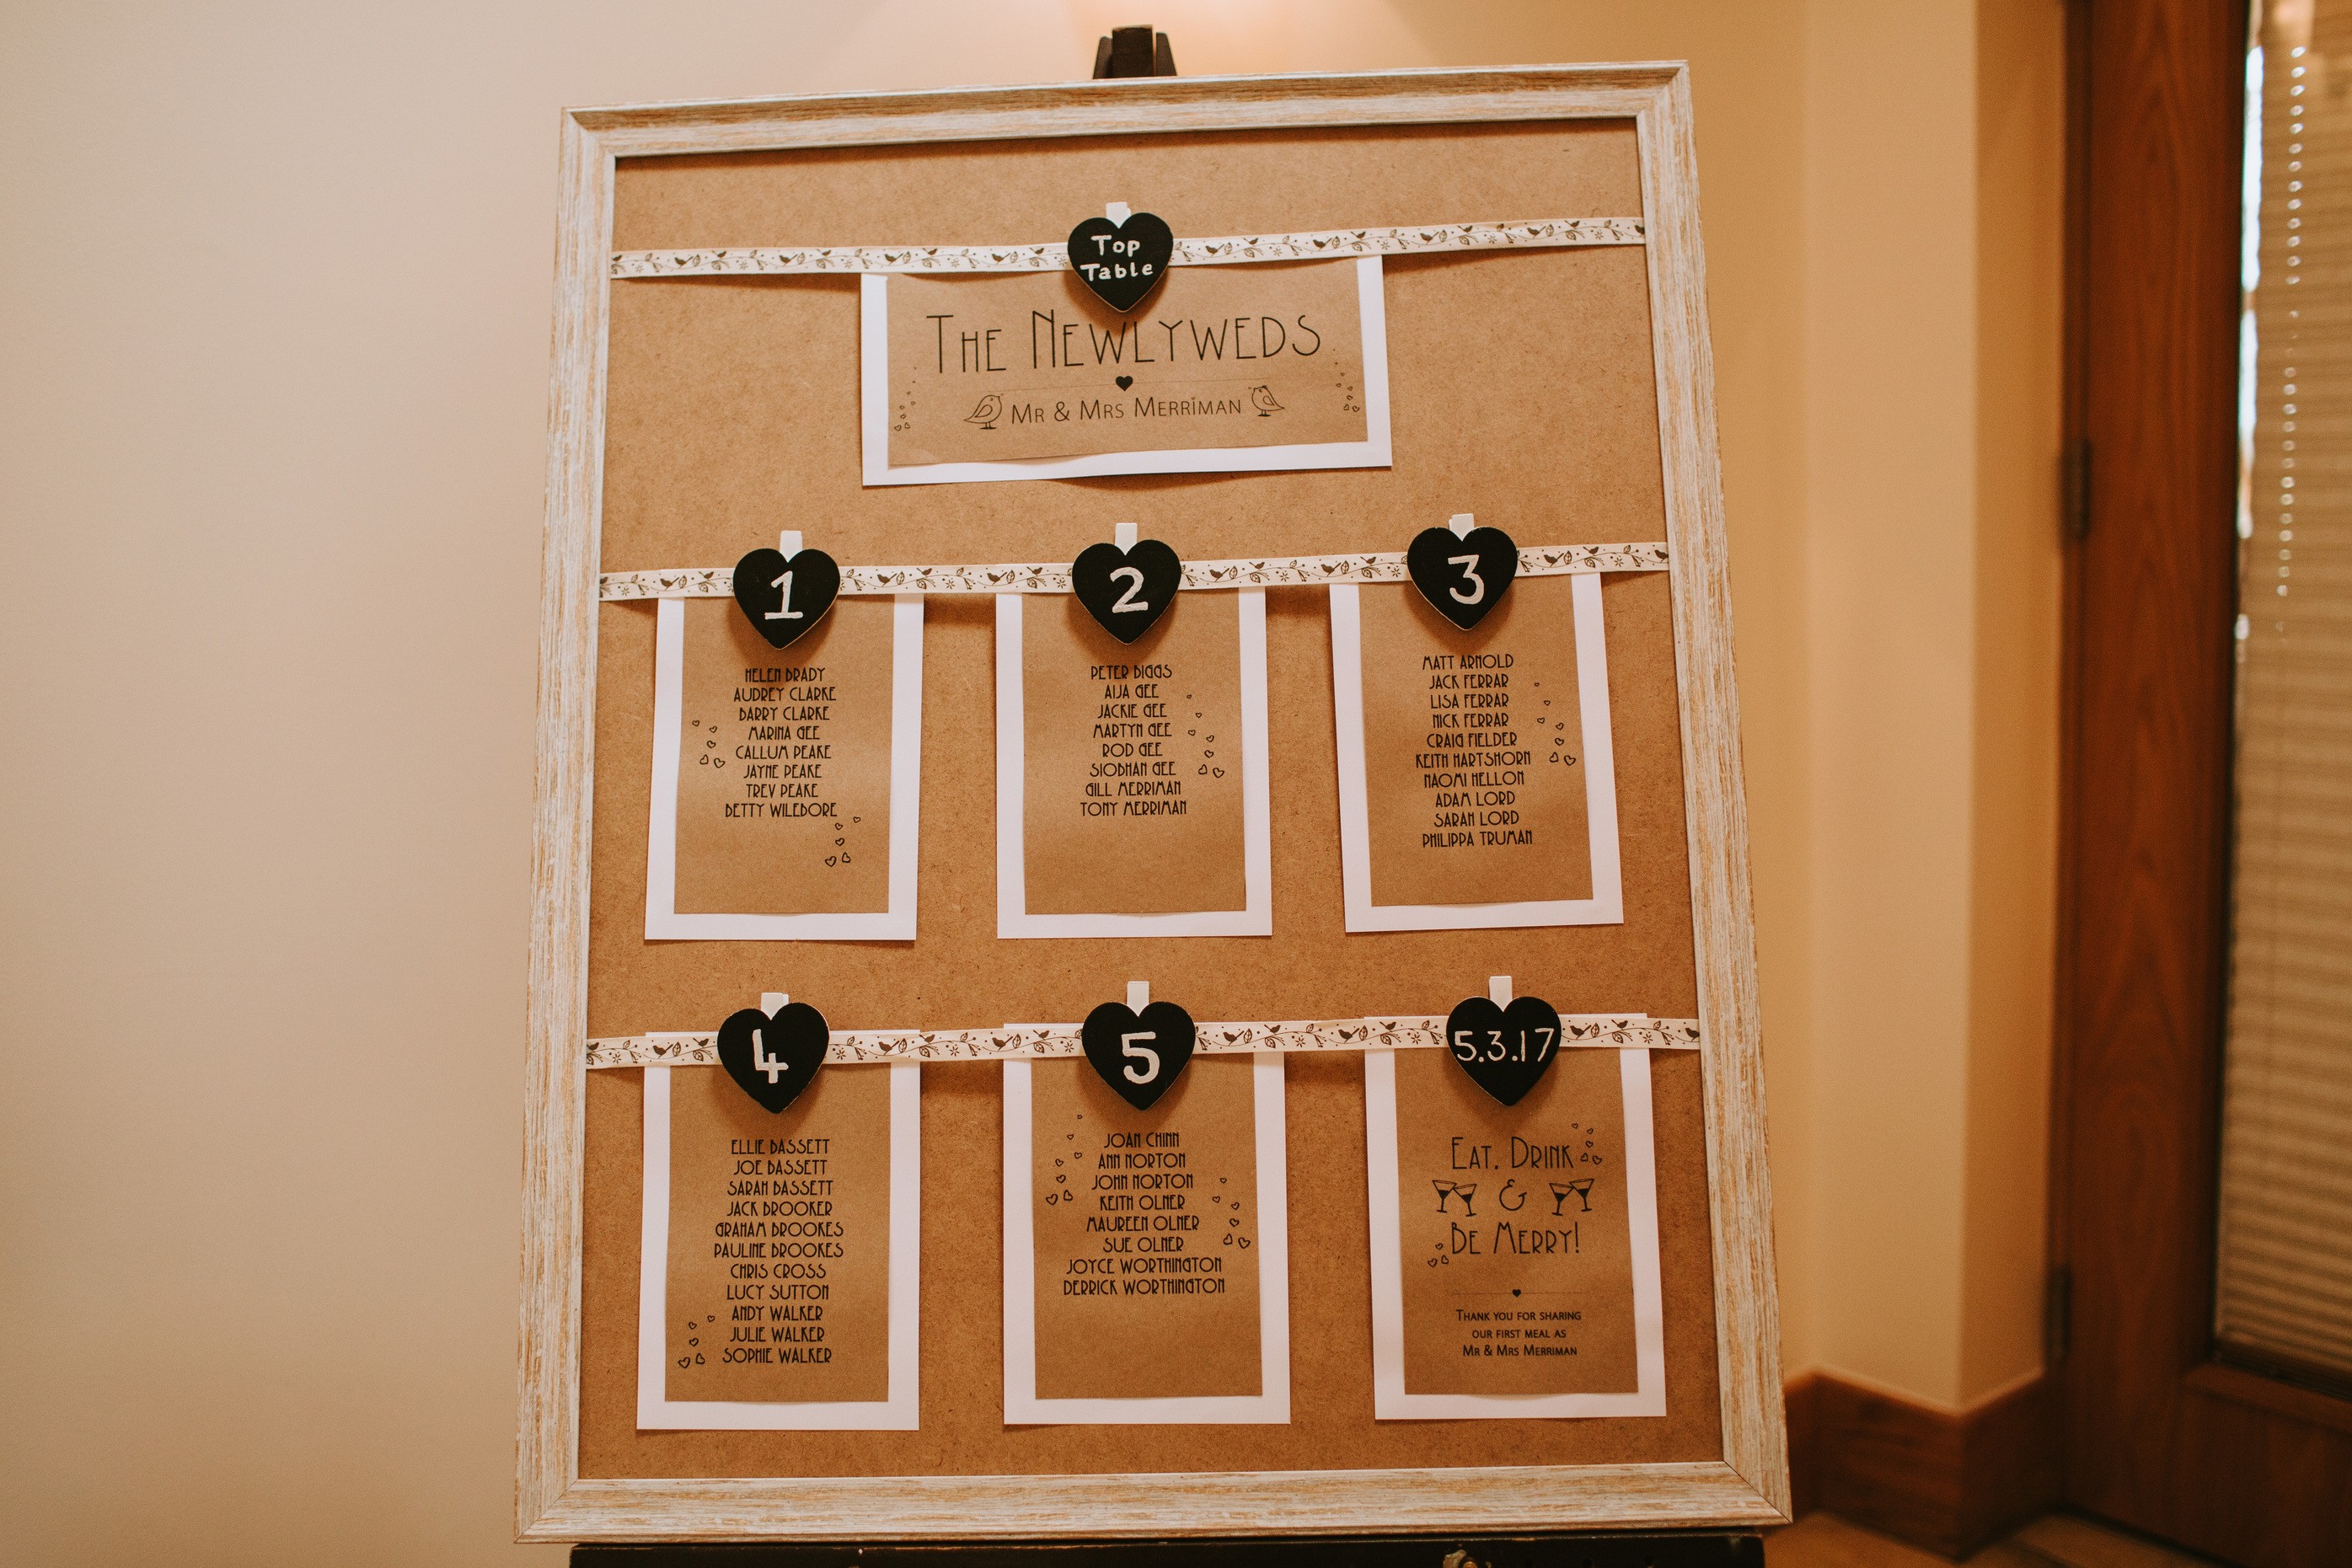 Top
Table
THE NEWLYWEDS
MR & MRS MERRIMAN
1
HELEN BRADY
AUDREY CLARKE
BARRY CLARKE
MARINA GEE
CALLUM PEAKE
JAYNE PEAKE
TREV PEAKE
BETTY WILEBORE
2
PETER BIGGS
AIJA GEE
JACKIE GEE
MARTYN GEE
ROD GEE
SIOBHAN GEE
GILL MERRIMAN
TONY MERRIMAN
3
MATT ARNOLD
JACK FERRAR
LISA FERRAR
NICK FERRAR
CRAIG FIELDER
KEITH HARTSHORN
NAOMI HELLON
ADAM LORD
SARAH LORD
PHILIPPA TRUMAN
4
ELLIE BASSETT
JOE BASSETT
SARAH BASSETT
JACK BROOKER
GRAHAM BROOKES
PAULINE BROOKES
CHRIS CROSS
LUCY SUTTON
ANDY WALKER
JULIE WALKER
SOPHIE WALKER
5
JOAN CHINN
ANN NORTON
JOHN NORTON
KEITH OLNER
MAUREEN OLNER
SUE OLNER
JOYCE WORTHINGTON
DERRICK WORTHINGTON
5.3.17
EAT, DRINK
&
BE MERRY!
THANK YOU FOR SHARING
OUR FIRST MEAL AS
MR & MRS MERRIMAN